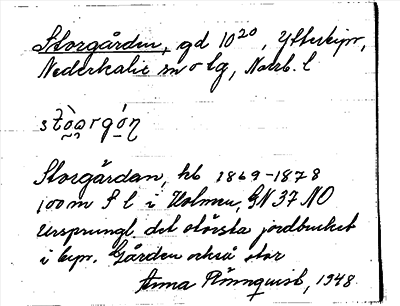 Storgården, gd 10²⁰, Ytterbyn,
Nederkalix sn o tg, Norrb. l
Storgårdan, hb 1869-1878
100 m S l i Holmen, GK 37 NO
Ursprungl. det största jordbruket
i byn. Gården också stor
Anna Rönnqvist, 1948